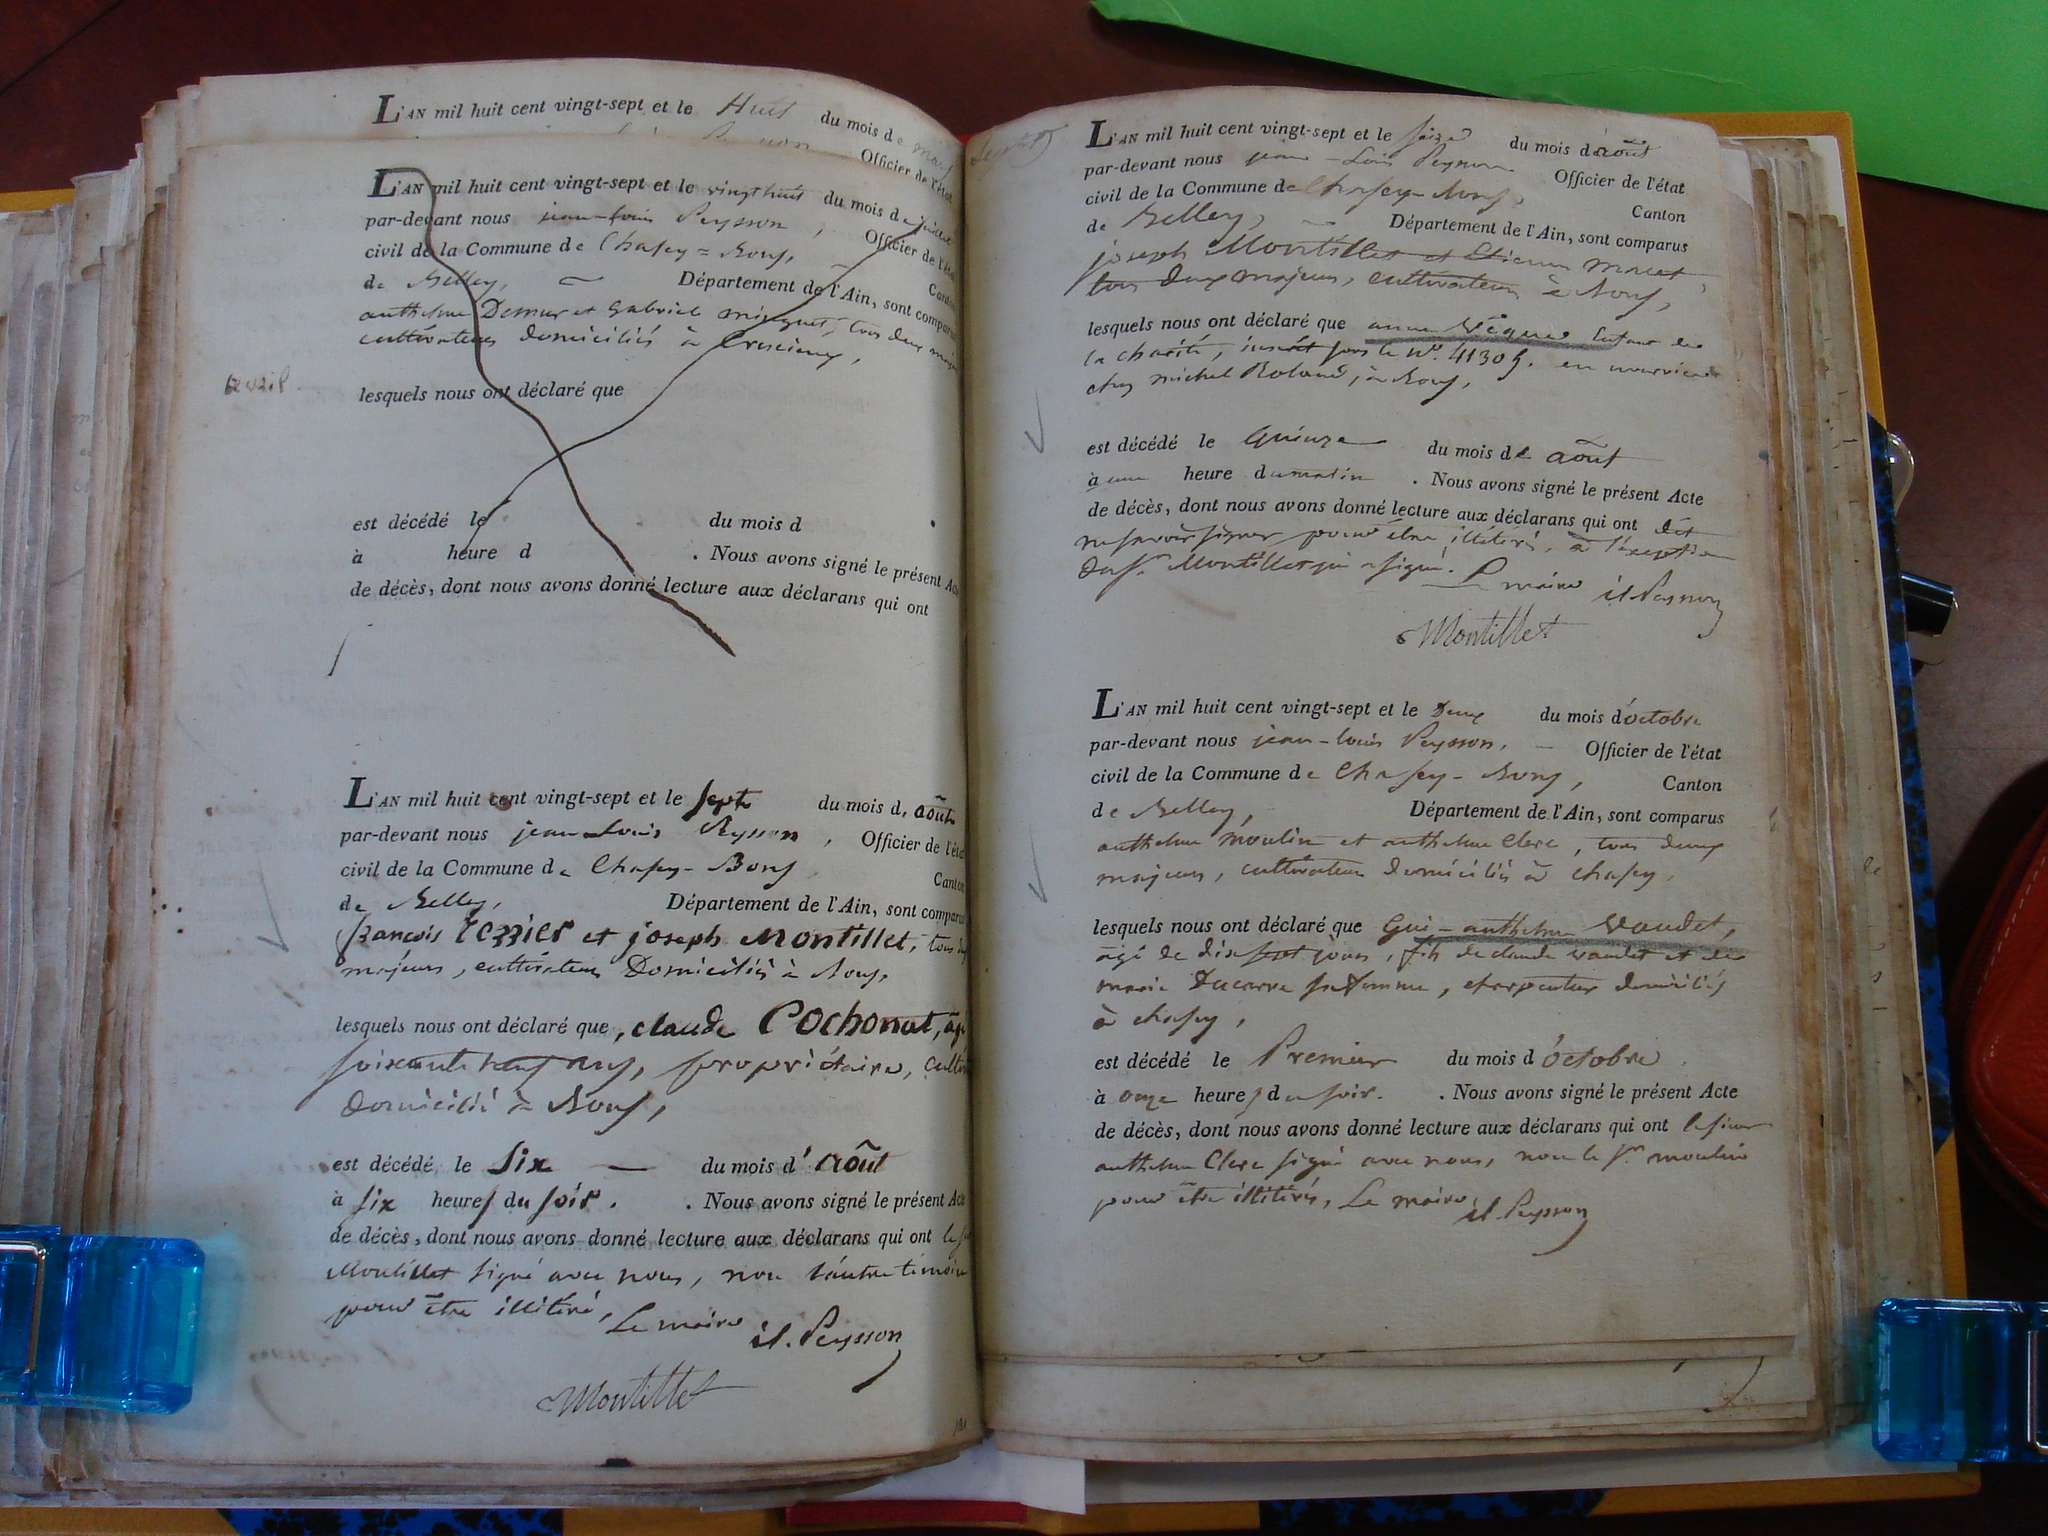 L'AN mil huit cent vingt-sept et le Huit du mois de mars
Officier de l'état
L'AN mil huit cent vingt-sept et le vingt huit du mois de juillet
par-devant nous jean-louis Peysson, Officier de l'état
civil de la Commune de Chasey=Bons, Canton
de Belley, Département de l'Ain, sont comparus
anthelme Demur et Gabriel minguet, tous deux majeurs
cultivateurs domiciliés à Cressieux,
lesquels nous ont déclaré que
est décédé le du mois d
à heure d . Nous avons signé le présent Acte
de décès, dont nous avons donné lecture aux déclarans qui ont
L'AN mil huit cent vingt-sept et le sept du mois d, août
par-devant nous jean-Louis Peysson, Officier de l'état
civil de la Commune de Chasey-Bons Canton
de Belley, Département de l'Ain, sont comparus
françois Tezzier et joseph Montillet, tous deux
majeurs, cultivateurs Domiciliés à Bons,
lesquels nous ont déclaré que, claude Cochonat, âgé
soixante neuf ans, propriétaire, cultiv
domicilié à Bons,
est décédé le Six du mois d' août
à six heures du soir. . Nous avons signé le présent Acte
de décès, dont nous avons donné lecture aux déclarans qui ont le s
Montillet signé avec nous, non l'autre témoin
pour être illitéré, Le maire jl. Peysson
Montillet
L'AN mil huit cent vingt-sept et le seize du mois d août
par-devant nous jean-Louis Peysson Officier de l'état
civil de la Commune de Chasey-Bons, Canton
de Belley, Département de l'Ain, sont comparus
joseph Montillet et Etienne moret
tous deux majeurs, cultivateurs à Bons,
lesquels nous ont déclaré que anne Véque Enfant de
la charité, inscrit sous le N°. 41305. en nourrice
chez michel Roland, à Bons,
est décédé le Quinze du mois de août
à une heure du matin . Nous avons signé le présent Acte
de décès, dont nous avons donné lecture aux déclarans qui ont dit
ne savoir signer pour être illitérés, à l'exeption
du Sr. Montillet qui a signé. Le maire jl Peysson
Montillet
L'AN mil huit cent vingt-sept et le Deux du mois d'octobre
par-devant nous jean-louis Peysson, Officier de l'état
civil de la Commune de Chasey-Bons, Canton
de Belley, Département de l'Ain, sont comparus
anthelme moulin et anthelme Clerc, tous deux
majeurs, cultivateurs domiciliés à chasey,
lesquels nous ont déclaré que Gui-anthelme Vaudet,
âgé de dix sept jours, fils de claude vaudet et de
marie Ducarre sa femme, charpentier domiciliés
à chasey,
est décédé le Premier du mois d'octobre
à onze heures du soir. . Nous avons signé le présent Acte
de décès, dont nous avons donné lecture aux déclarans qui ont le sieur
anthelme Clerc signé avec nous, non le Sr. moulin
pour être illitérés, Le maire, jl. Peysson